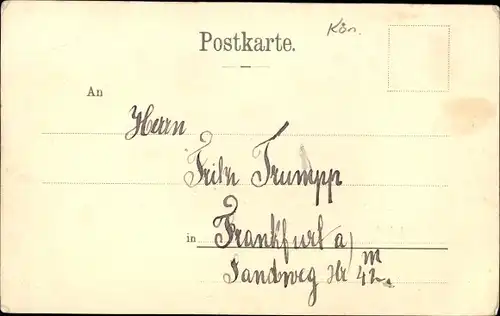 Kön.
Postkarte.
An
Herrn
Fritz Trumpp
in Frankfurt a/
M
Sandweg Nr 42.